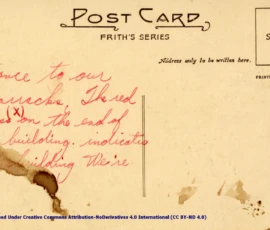 POST CARD
FRITH'S SERIES
Address only to be written here.
S
ance to our
arracks, The red
(x)
on the end of
building indicates
building We're
ed Under Creative Commons Attribution-NoDerivatives 4.0 International (CC BY-ND 4.0)